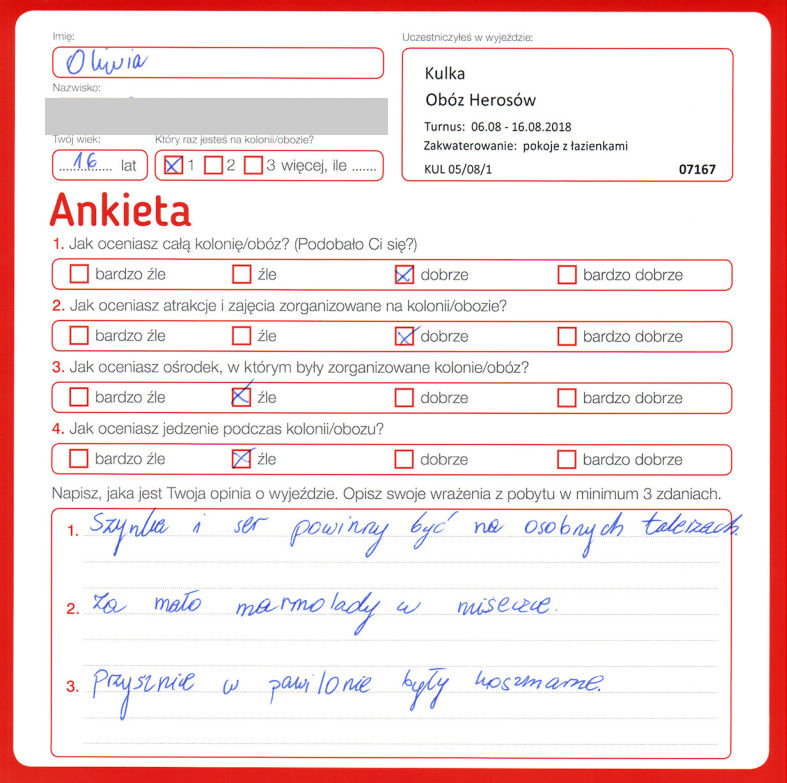 Imię:
Uczestniczyłeś w wyjeździe:
Oliwia
Kulka
Obóz Herosów
Turnus: 06.08 - 16.08.2018
Zakwaterowanie: pokoje z łazienkami
KUL 05/08/1 07167
Nazwisko:
Twój wiek:
Który raz jesteś na kolonii/obozie?
16 lat
1 2 3 więcej, ile .......
Ankieta
1. Jak oceniasz całą kolonię/obóz? (Podobało Ci się?)
bardzo źle źle dobrze bardzo dobrze
2. Jak oceniasz atrakcje i zajęcia zorganizowane na kolonii/obozie?
bardzo źle źle dobrze bardzo dobrze
3. Jak oceniasz ośrodek, w którym były zorganizowane kolonie/obóz?
bardzo źle źle dobrze bardzo dobrze
4. Jak oceniasz jedzenie podczas kolonii/obozu?
bardzo źle źle dobrze bardzo dobrze
Napisz, jaka jest Twoja opinia o wyjeździe. Opisz swoje wrażenia z pobytu w minimum 3 zdaniach.
1. Szynka i ser powinny być na osobnych talerzach.
2. Za mało marmolady w miseczce.
3. Prysznice w pawilonie były koszmarne.